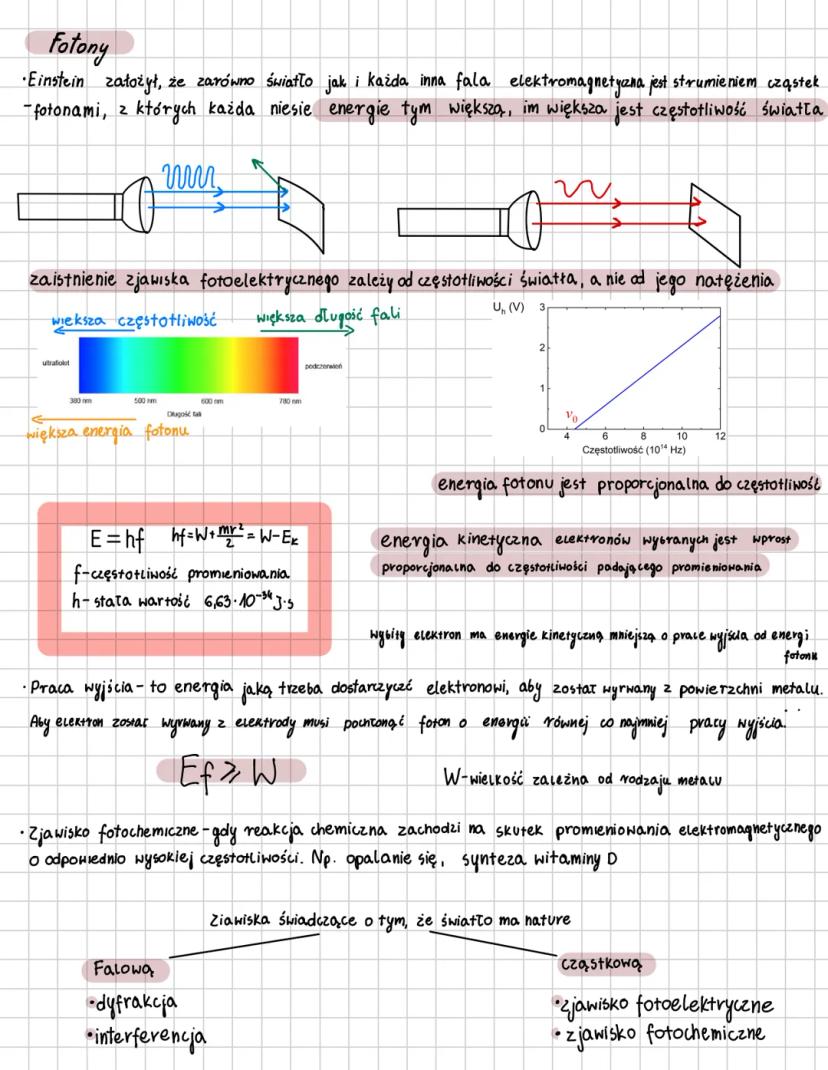 Fotony
·Einstein założył, że zarówno światło jak i każda inna fala elektromagnetyczna jest strumieniem cząstek
-fotonami, z których każda niesie energie tym większą, im większa jest częstotliwość światła
zaistnienie zjawiska fotoelektrycznego zależy od częstotliwości światła, a nie od jego natężenia
większa częstotliwość
większa długość fali
ultrafiolet
podczerwień
380 nm 500 nm 600 nm 780 nm
Długość fali
większa energia fotonu
Uₕ (V)
3
2
1
0
ν₀
4 6 8 10 12
Częstotliwość (10¹⁴ Hz)
energia fotonu jest proporcjonalna do częstotliwość
E = hf hf=W+mv²/2 = W-Eₖ
f-częstotliwość promieniowania
h-stała wartość 6,63·10⁻³⁴ J·s
energia kinetyczna elektronów wybranych jest wprost
proporcjonalna do częstotliwości padającego promieniowania
wybity elektron ma energie kinetyczną mniejszą o prace wyjścia od energi
fotonu
·Praca wyjścia- to energia jaką trzeba dostarczyć elektronowi, aby został wyrwany z powierzchni metalu.
Aby elektron został wyrwany z elektrody musi pochłonąć foton o energii równej co najmniej pracy wyjścia.
Ef ⩾ W
W-wielkość zależna od rodzaju metalu
·Zjawisko fotochemiczne-gdy reakcja chemiczna zachodzi na skutek promieniowania elektromagnetycznego
o odpowiednio wysokiej częstotliwości. Np. opalanie się, synteza witaminy D
Zjawiska świadczące o tym, że światło ma nature
Falową
·dyfrakcja
·interferencja
cząstkową
·zjawisko fotoelektryczne
·zjawisko fotochemiczne